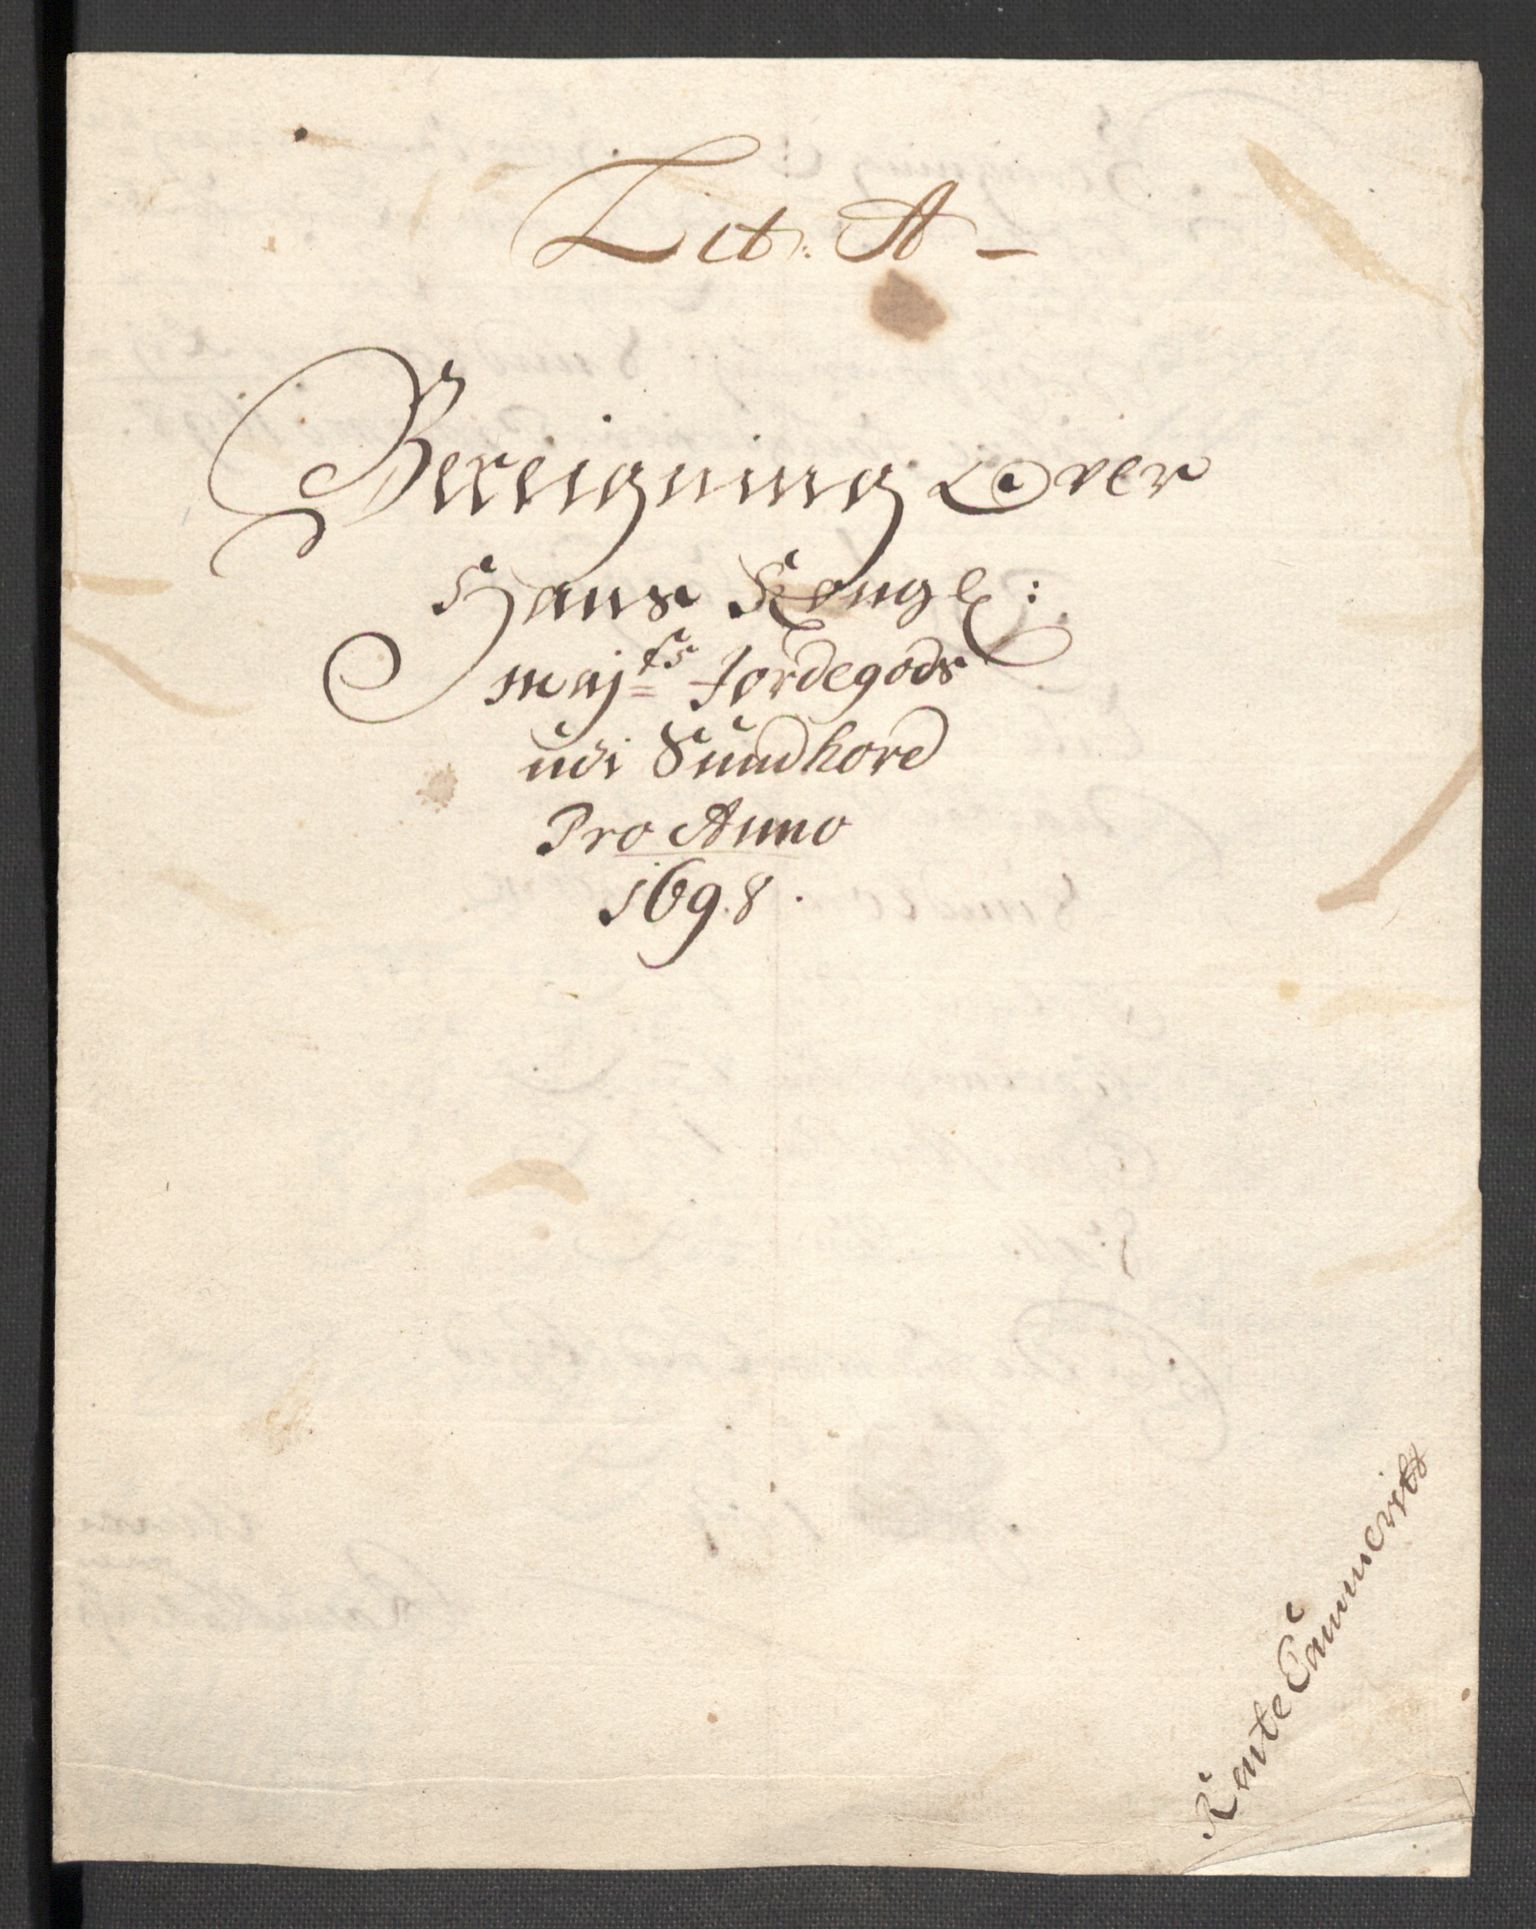 Lit: A –
Bereigning Over
Hans Kongl:
maj<sup>ts</sup> Jordegods
udi Sundhord
Pro Anno
1698.
Rente Cammerits